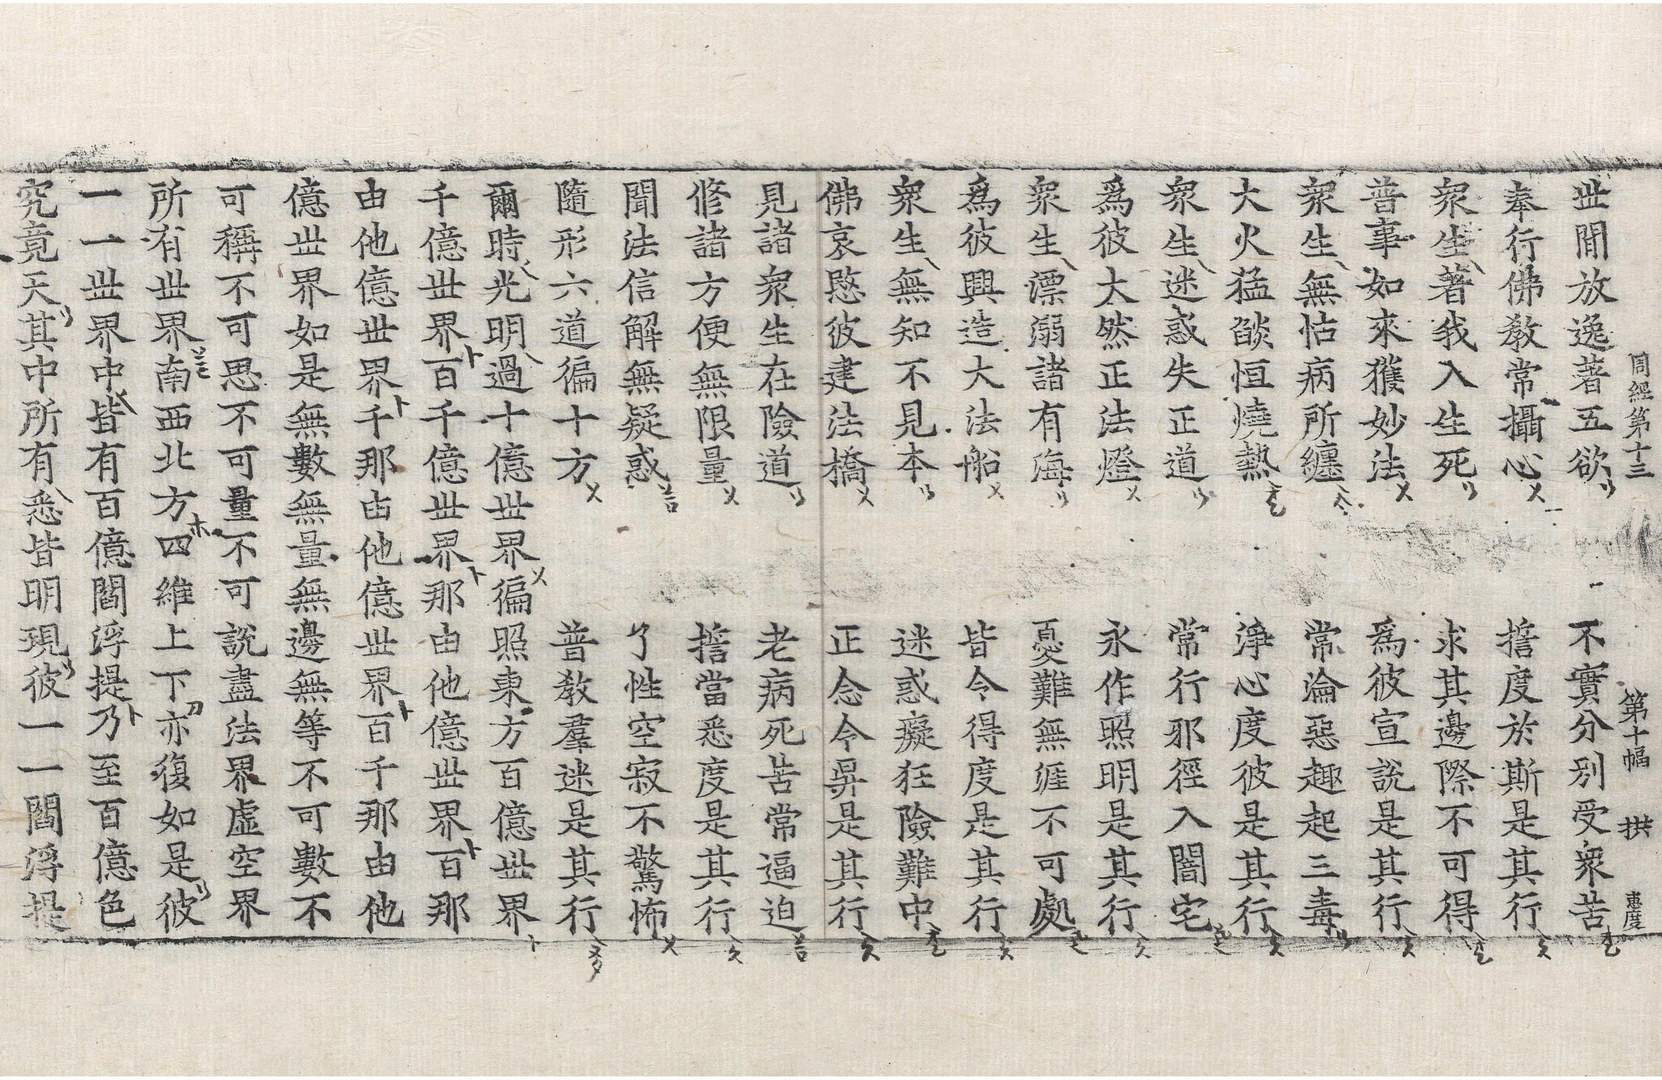 周經第十三 第十幅 拱 惠度
世間放逸著五欲 不實分別受衆苦
奉行佛教常攝心 誓度於斯是其行
衆生著我入生死 求其邊際不可得
普事如來獲妙法 爲彼宣說是其行
衆生無怙病所纏 常淪惡趣起三毒
大火猛燄恒燒熱 淨心度彼是其行
衆生迷惑失正道 常行邪徑入闇宅
爲彼大然正法燈 永作照明是其行
衆生漂溺諸有海 憂難無涯不可處
爲彼興造大法船 皆令得度是其行
衆生無知不見本 迷惑癡狂險難中
佛哀愍彼建法橋 正念令昇是其行
見諸衆生在險道 老病死苦常逼迫
修諸方便無限量 誓當悉度是其行
聞法信解無疑惑 了性空寂不驚怖
隨形六道徧十方 普教羣迷是其行
爾時光明過十億世界徧照東方百億世界
千億世界百千億世界那由他億世界百那
由他億世界千那由他億世界百千那由他
億世界如是無數無量無邊無等不可數不
可稱不可思不可量不可說盡法界虛空界
所有世界南西北方四維上下亦復如是彼
一一世界中皆有百億閻浮提乃至百億色
究竟天其中所有悉皆明現彼一一閻浮提